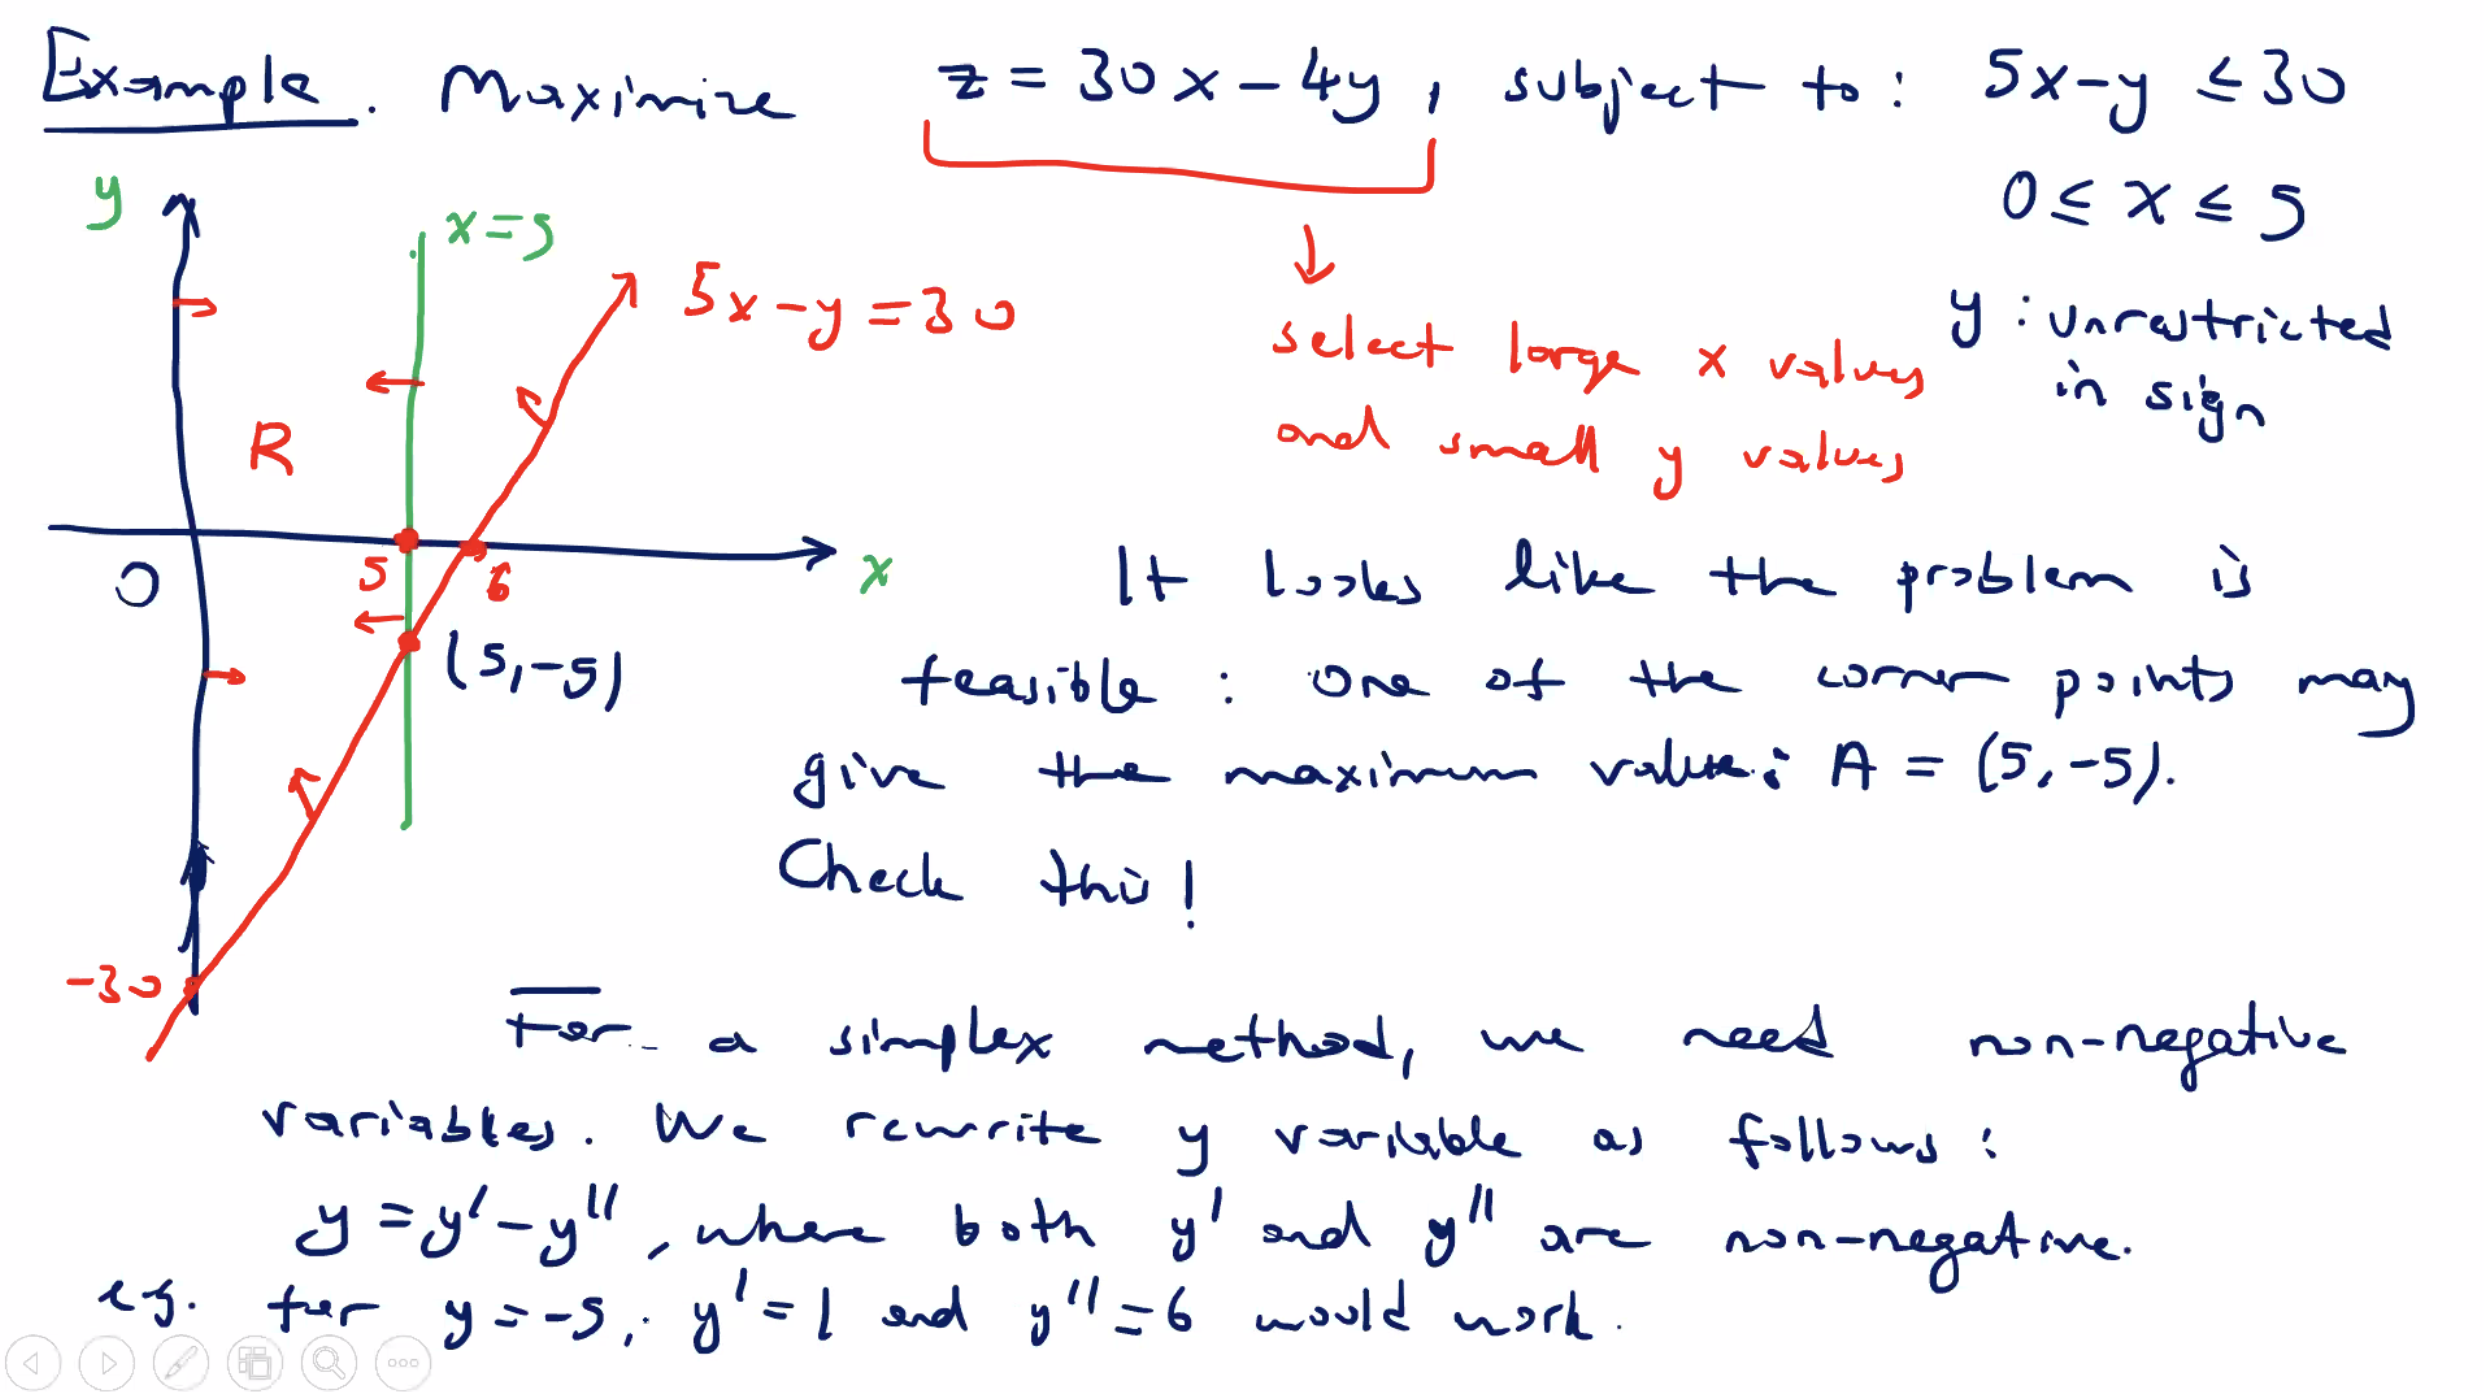 Example. Maximize z = 30x - 4y, subject to: 5x-y ≤ 30
0 ≤ x ≤ 5
y : unrestricted
in sign
y
x=5
5x-y=30
select large x values
and small y values
R
O
5
6
x
(5,-5)
-30
It looks like the problem is
feasible : One of the corner points may
give the maximum value: A = (5,-5).
Check this!
For a simplex method, we need non-negative
variables. We rewrite y variable as follows:
y = y' - y'', where both y' and y'' are non-negative.
e.g. for y = -5, y' = 1 and y'' = 6 would work.